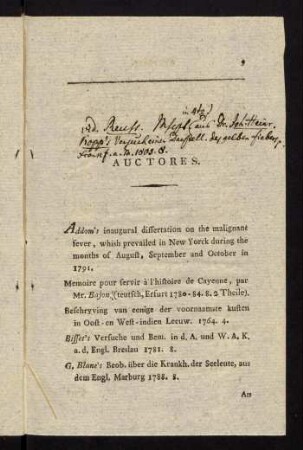 in Abg
ad. Reuss. Dr. Joh. Heinr.
Kopp's Versuch einer Darstell. des gelben Fiebers,
Frankf. a. M. 1805. 8.
AUCTORES.
Addom's inaugural dissertation on the malignant
fever, which prevailed in New Yorck during the
months of August, September and October in
1791.
Memoire pour servir à l'histoire de Cayenne, par
Mr. Bajon, (teutsch, Erfurt 1780-84. 8. 2 Theile).
Beschryving van eenige der voornaamste kusten
in Oost- en West-indien Leeuw. 1764. 4.
Bisset's Versuche und Bem. in d. A. und W. A. K.
a. d. Engl. Breslau 1781. 8.
G. Blane's Beob. über die Krankh. der Seeleute, aus
dem Engl. Marburg 1788. 8.